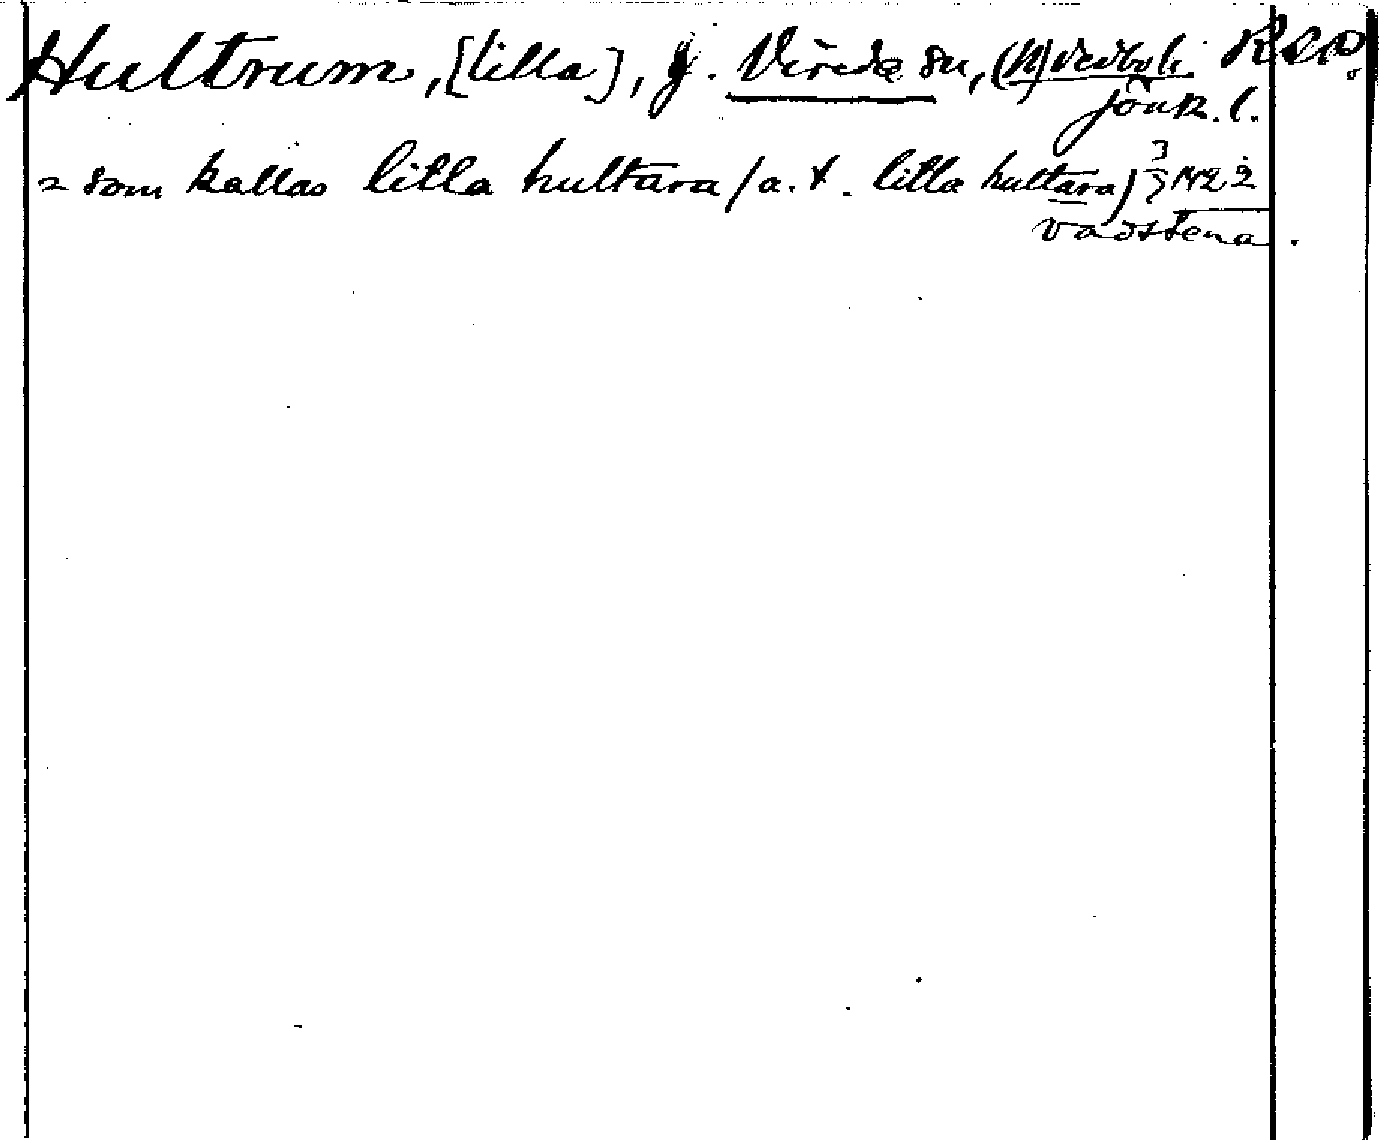 Hultrum, [lilla], g. Vireda sn, (N) Vedbo h. RAP.
Jönk. l.
2 som kallas litla hultara / a. t. litla hultara) 3/3 1422
Vadstena.